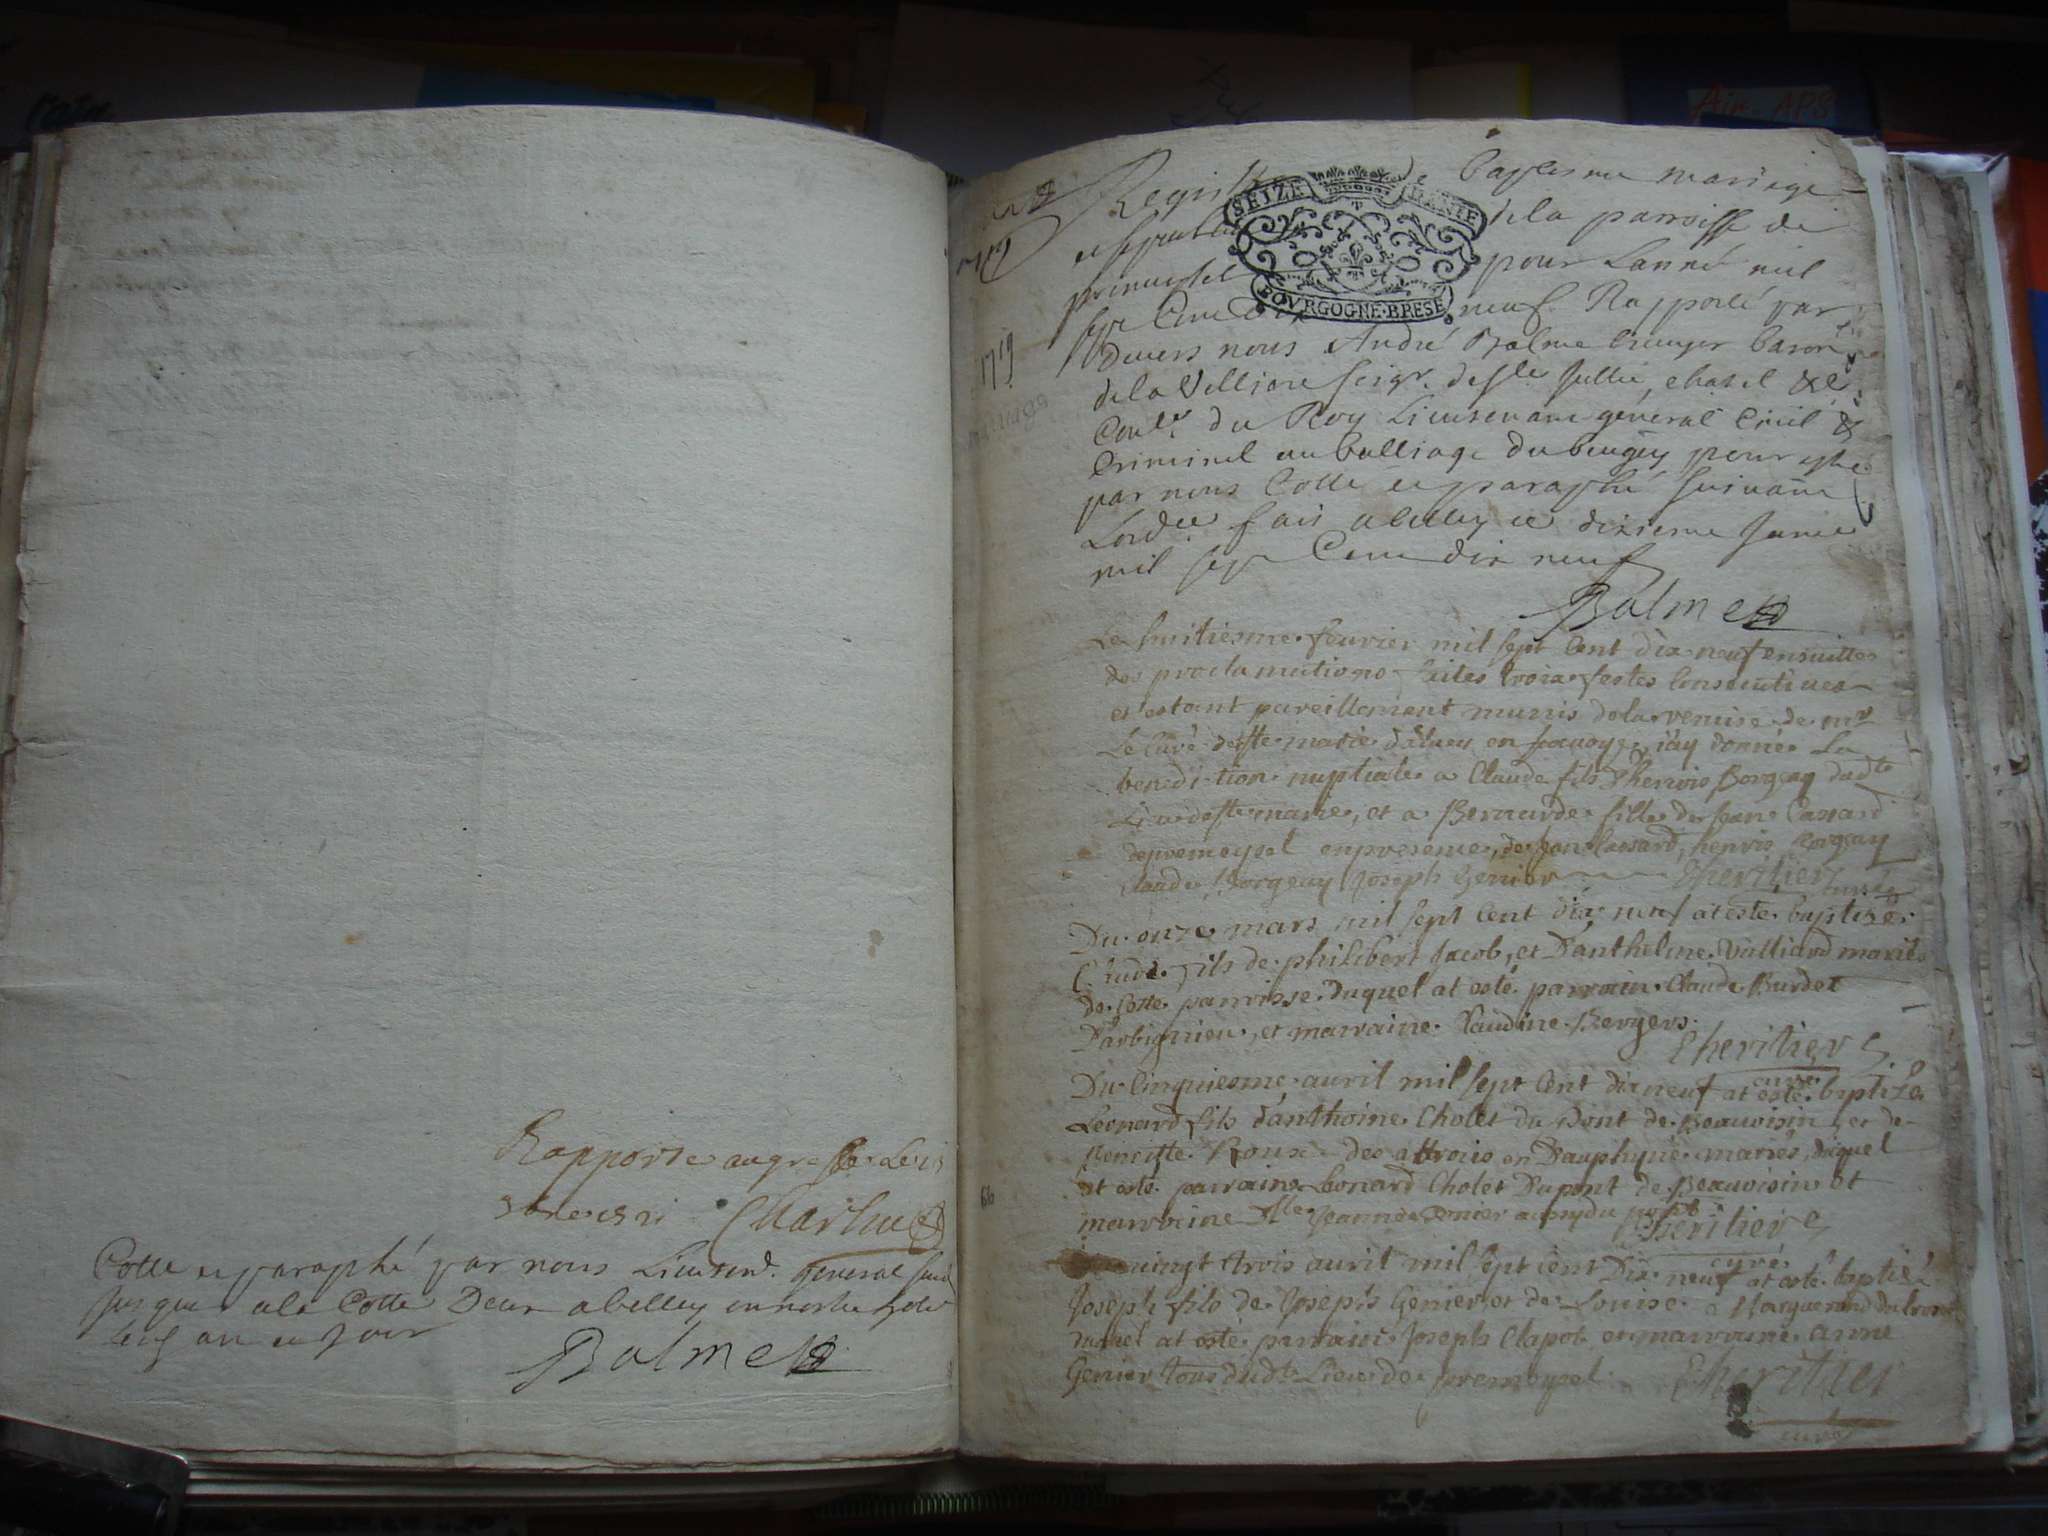 Rapporté au greffe le
Charlin
Cotte et paraphé par nous Lieuten.t general
jusques a la Cotte Deux a belley
an et jour
Balme
Registre de baptesme mariage
et sepulture de la parroisse de
premeysel pour Lanné mil
sept Cent dix neuf Rapporté par
Devers nous André Balme Ecuyer baron
de la Velliere seigr.
Conler du Roy Lieutenant général Civil &
Criminel au balliage du beugey pour estre
par nous Cotté et paraphé suivant
Lord.ce fait a belley ce dixieme Janvier
mil sept Cent dix neuf
Balme
SEIZE
BOVRGOGNE·BRESE
1719
mariage
Le huitiesme fevrier mil sept Cent dix neuf ensuitte
des proclamations faites trois festes Consecutives
et estant pareillement munis de la remise de mr
Le Curé de ste marie en savoye, j'ay donné La
benediction nuptiale a Claude fils d'henris Borgeay dudt
Lieu de ste marie, et a Bernarde fille de Jean Cassard
de premeysel en presence, de Jean Cassard, henris Borgeay
Claude Borgeay Joseph Genier Lheritier
curé
Du onze mars mil sept Cent dix neuf at esté baptisé
Claude fils de philibert Jacob, et D'anthelme Valliard mariés
de cette parroisse, duquel at esté parrain Claude Burdet
D'arbignieu, et marraine Claudine Bergers
Lheritier
curé
Du Cinquiesme avril mil sept Cent dix neuf at esté baptizé
Leonard fils d'anthoine Cholet du Pont de Beauvoisin et de
Benoitte Roux des attrois en Dauphyné mariés, duquel
at esté parrain Leonard Cholet Du pont de Beauvoisin et
marraine Dlle Jeanne Genier du pont
Lheritier
curé
66
Du vingt trois avril mil sept cent Dix neuf at esté baptisé
Joseph fils de Joseph Genier et de Louise Marguerand
duquel at esté parrain Joseph Clapot et marraine anne
Genier tous dudt Lieu de premeysel. Lheritier
curé
Ain APS